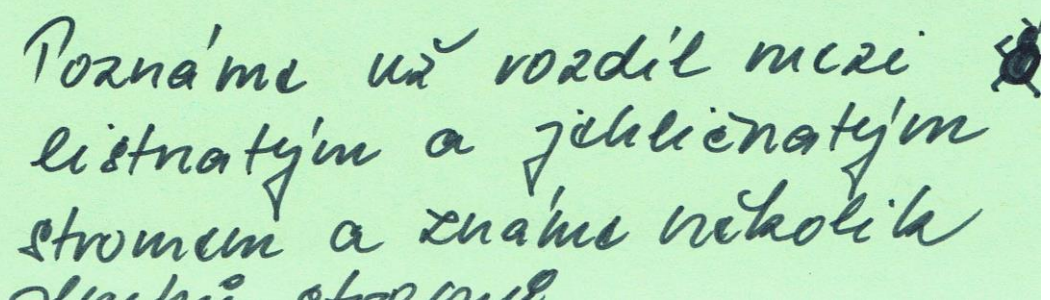 Poznáme už rozdíl mezi
listnatým a jehličnatým
stromem a známe několik
druhů stromů